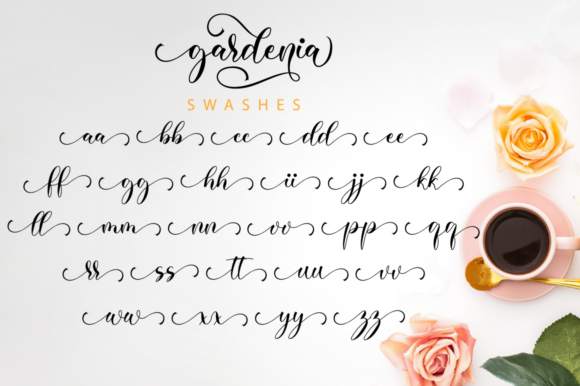 gardenia
SWASHES
aa bb cc dd ee
ff gg hh ii jj kk
ll mm nn oo pp qq
rr ss tt uu vv
ww xx yy zz